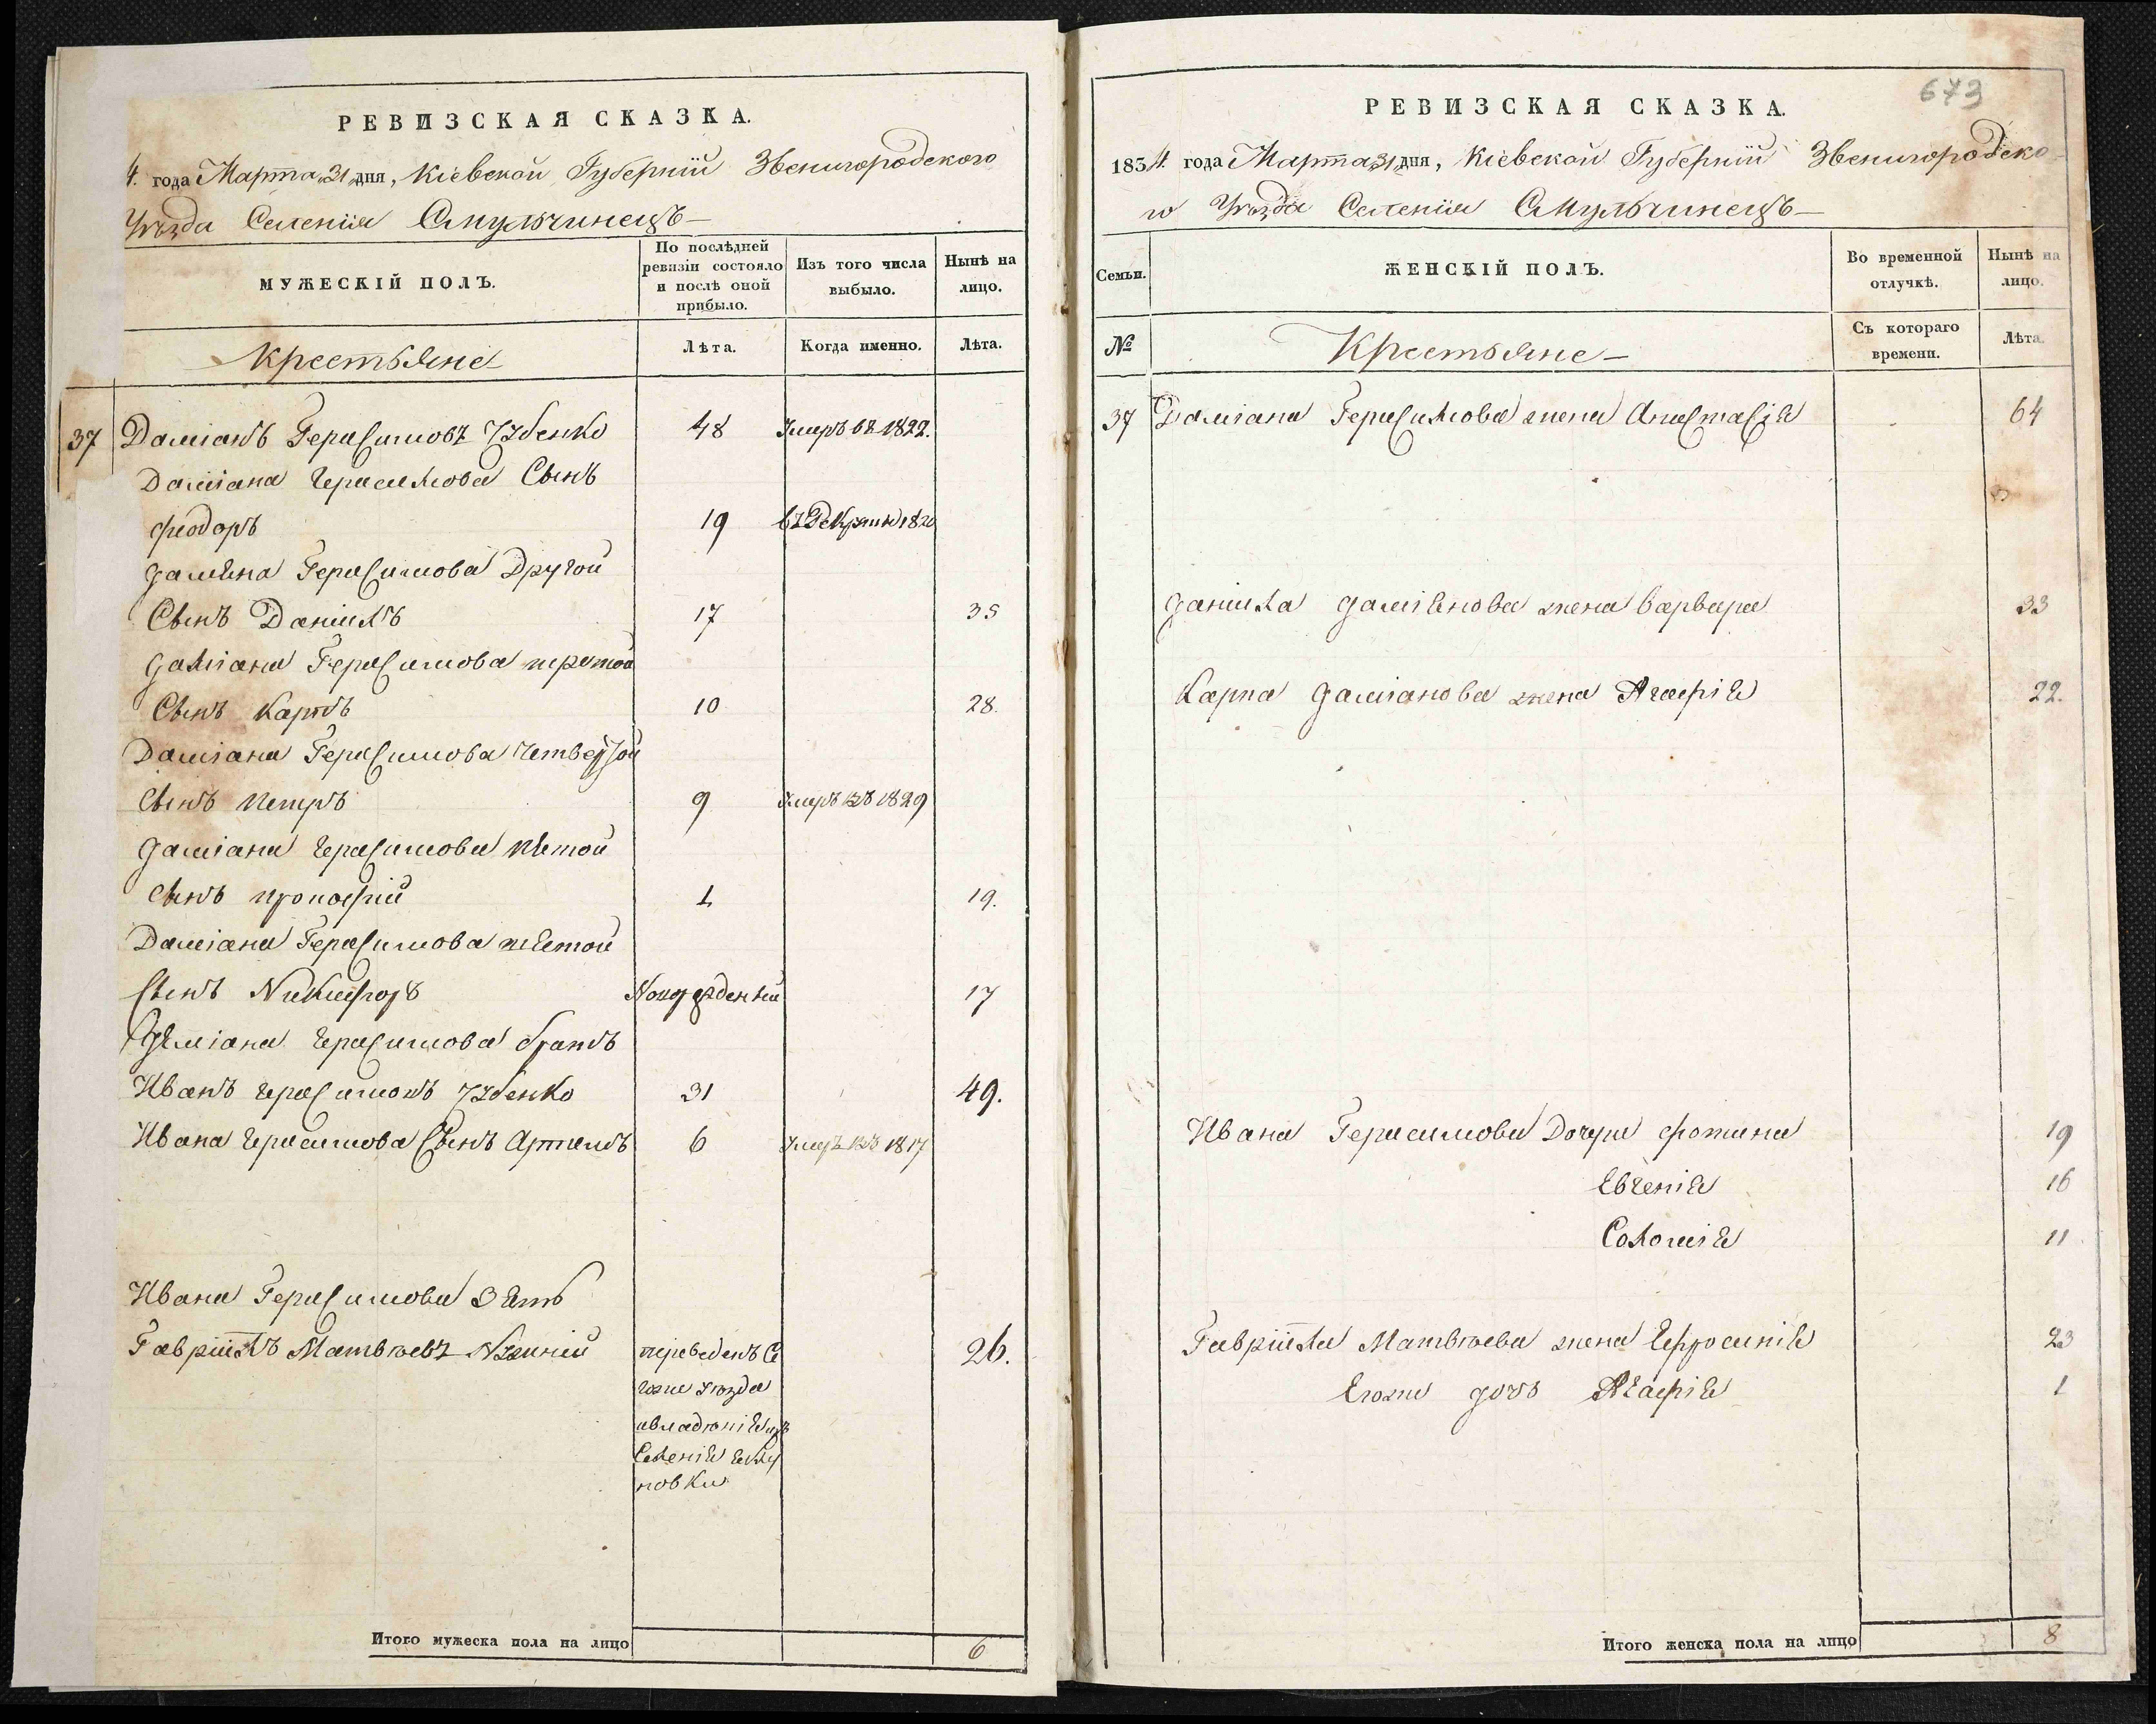 РЕВИЗСКАЯ СКАЗКА.
4. года Марта 31 дня, Кіевской Губерніи Звенигородского
Уѣзда Селенія Смульчинецъ
МУЖЕСКІЙ ПОЛЪ.
По послѣдней ревизіи состояло и послѣ оной прибыло.
Изъ того числа выбыло.
Нынѣ на лицо.
Крестьяне
Лѣта.
Когда именно.
Лѣта.
37 Даміанъ Герасимовъ 48 Умеръ въ 1822.
Даміана Герасимова Сынъ
Феодоръ 19 въ Рекруты 1820
Даміяна Герасимова Другой
Сынъ Даніилъ 17 35
Даміана Герасимова третой
Сынъ Карпъ 10 28.
Даміана Герасимова Четвертой
Сынъ Петръ 9 Умеръ въ 1829
Даміана Герасимова пятой
Сынъ Прокофій 1 19.
Даміана Герасимова шестой
Сынъ Никифоръ 17
Даміана Герасимова братъ
Иванъ Герасимовъ 31 49.
Ивана Герасимова Сынъ Артемъ 6 Умеръ въ 1817
Ивана Герасимова Зять
Гавріилъ Матвѣевъ переведенъ Се 26.
гоже уѣзда
Селенія
новки
Итого мужеска пола на лицо 6
673
РЕВИЗСКАЯ СКАЗКА.
1834. года Марта 31 дня, Кіевской Губерніи Звенигородско
го Уѣзда Селенія Смульчинецъ
Семьи.
ЖЕНСКІЙ ПОЛЪ.
Во временной отлучкѣ.
Нынѣ на лицо.
№
Крестьяне
Съ котораго времени.
Лѣта.
37 Даміана Герасимова жена Анастасія 64
Даніила Даміянова жена Варвара 33
Карпа Даміанова жена Агафія 22.
Ивана Герасимова Дочери Фотина 19
Евгенія 16
Соломія 11
Гавріила Матвѣева жена Ефросинія 23
Егоже дочь Агафія 1
Итого женска пола на лицо 8